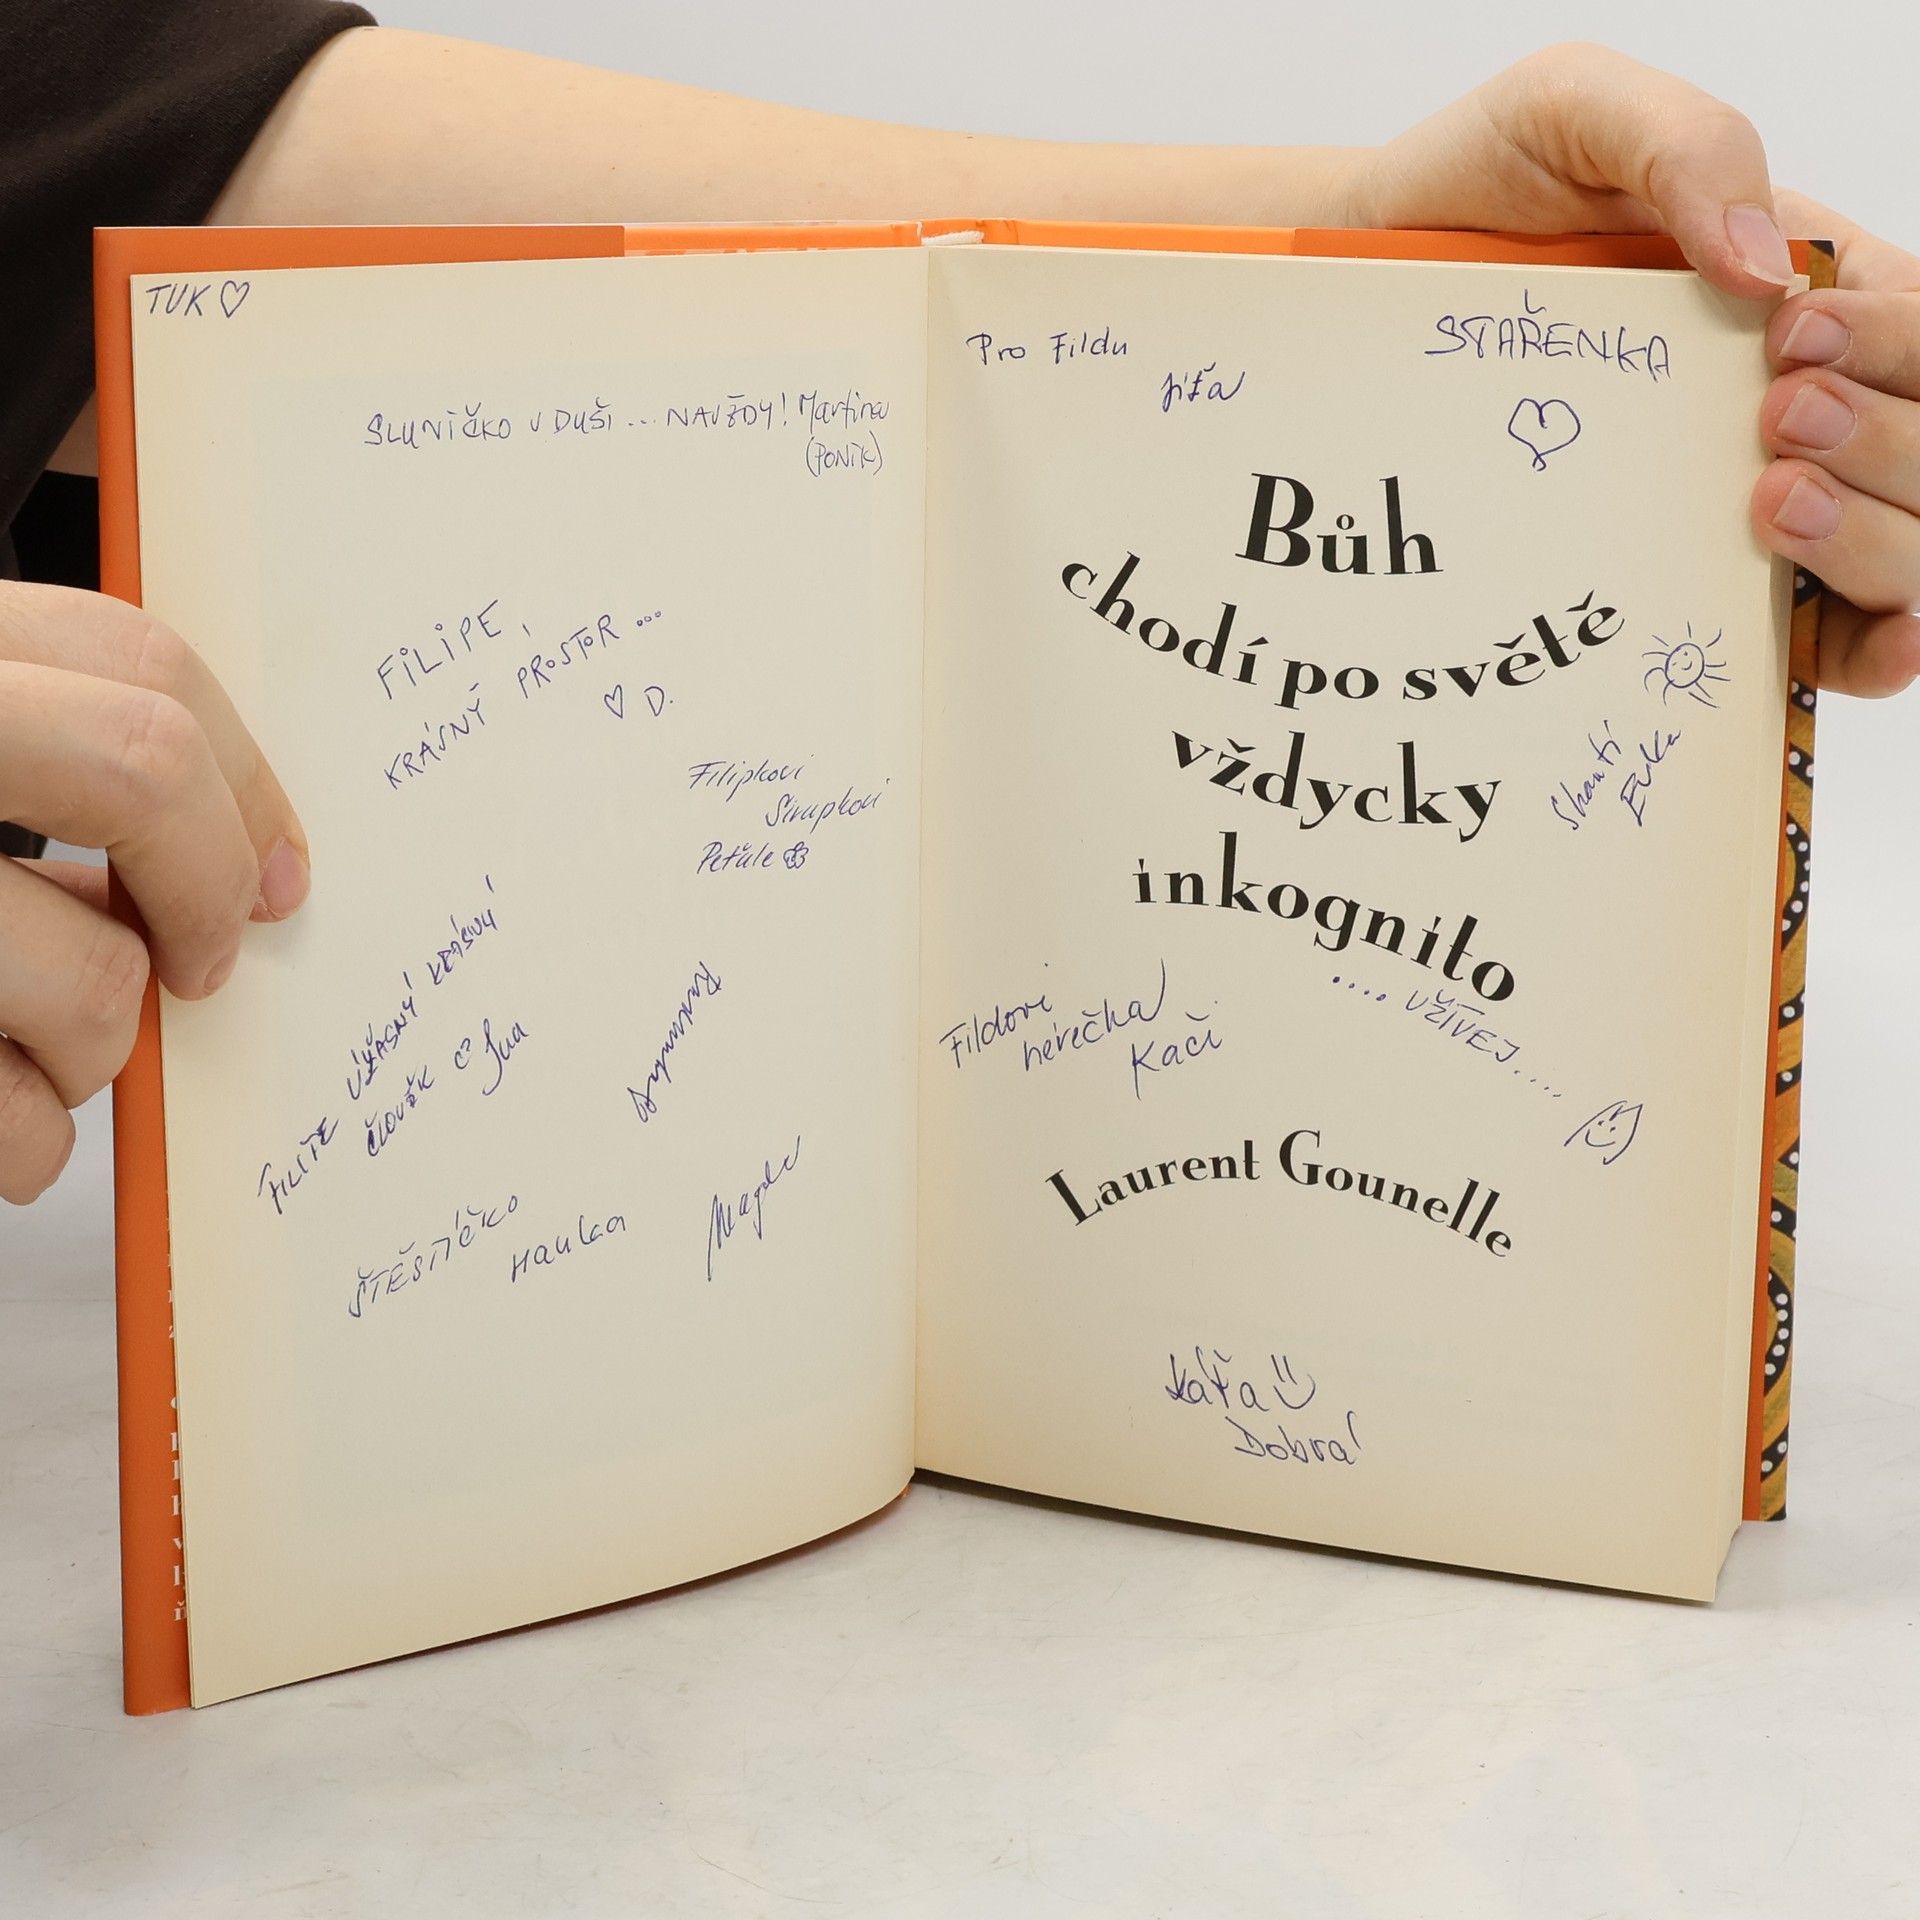 TUK ♡
SLUNÍČKO V DUŠI ... NAVŽDY! Martina
(PONÍK)
FILIPE,
KRÁSNÝ PROSTOR ...
♡ D.
Filipkovi
Sirupkovi
Peťule
FILIPE ÚŽASNÝ KRÁSNÝ
ČLOVĚK
ŠTĚSTÍČKO
HANKA
Magda
Pro Fildu
Jíťa
STAŘENKA
Bůh
chodí po světě
vždycky
inkognito
Shanti
Evka
.... UŽÍVEJ ....
Fildovi
herečka
Kači
Laurent Gounelle
Káťa
Dobrá